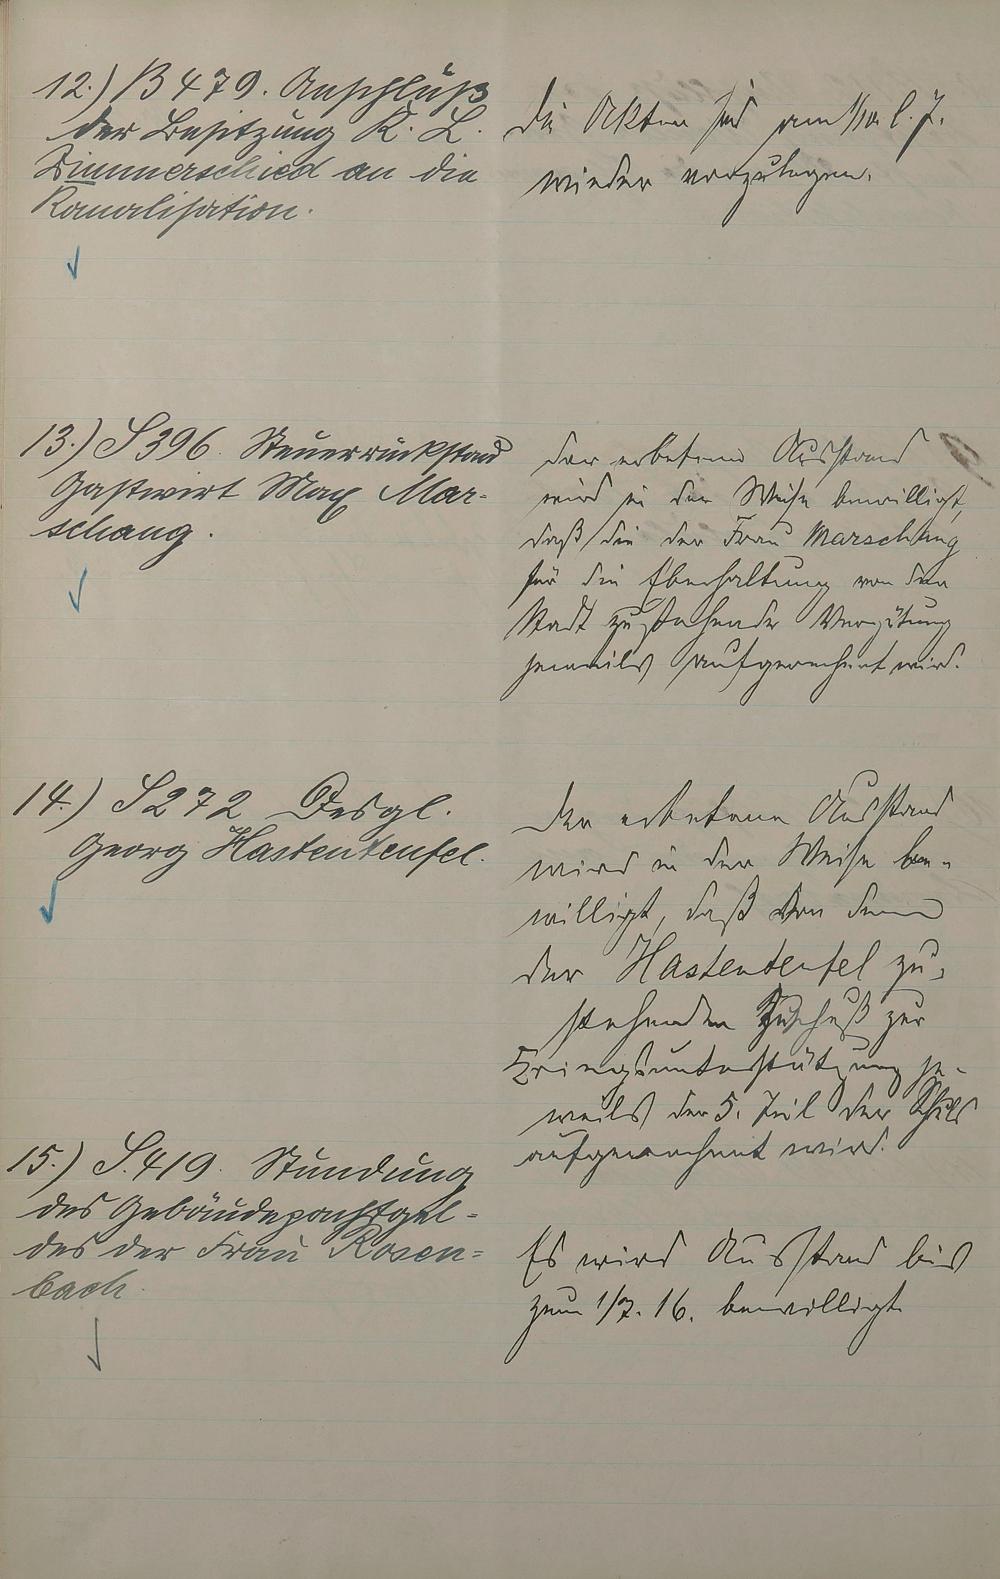 12.) B 479. Anschluß
der Besitzung K. L.
Zimmerschied an die
Kanalisation.
Die Akten sind zum 1/10. l. J.
wieder vorzulegen.
13.) S 396. Steuerrückstand
Gastwirt Max Mar-
schang.
Der erbetene Ausstand
wird in der Weise bewilligt,
daß die der Frau Marschang
für die Überhaltung von der
Stadt zustehende Vergütung
jeweils aufgerechnet wird.
14.) S 272 Desgl.
Georg Hastenteufel.
Der erbetene Ausstand
wird in der Weise be-
willigt, daß von dem
der Hastenteufel zu-
stehenden Zuschuß zur
Kriegsunterstützung je-
weils der 5. Teil der Schuld
aufgerechnet wird.
15.) S. 419. Stundung
des Gebäudepachtgel-
des der Frau Rosen-
bach.
Es wird Ausstand bis
zum 1/7. 16. bewilligt.